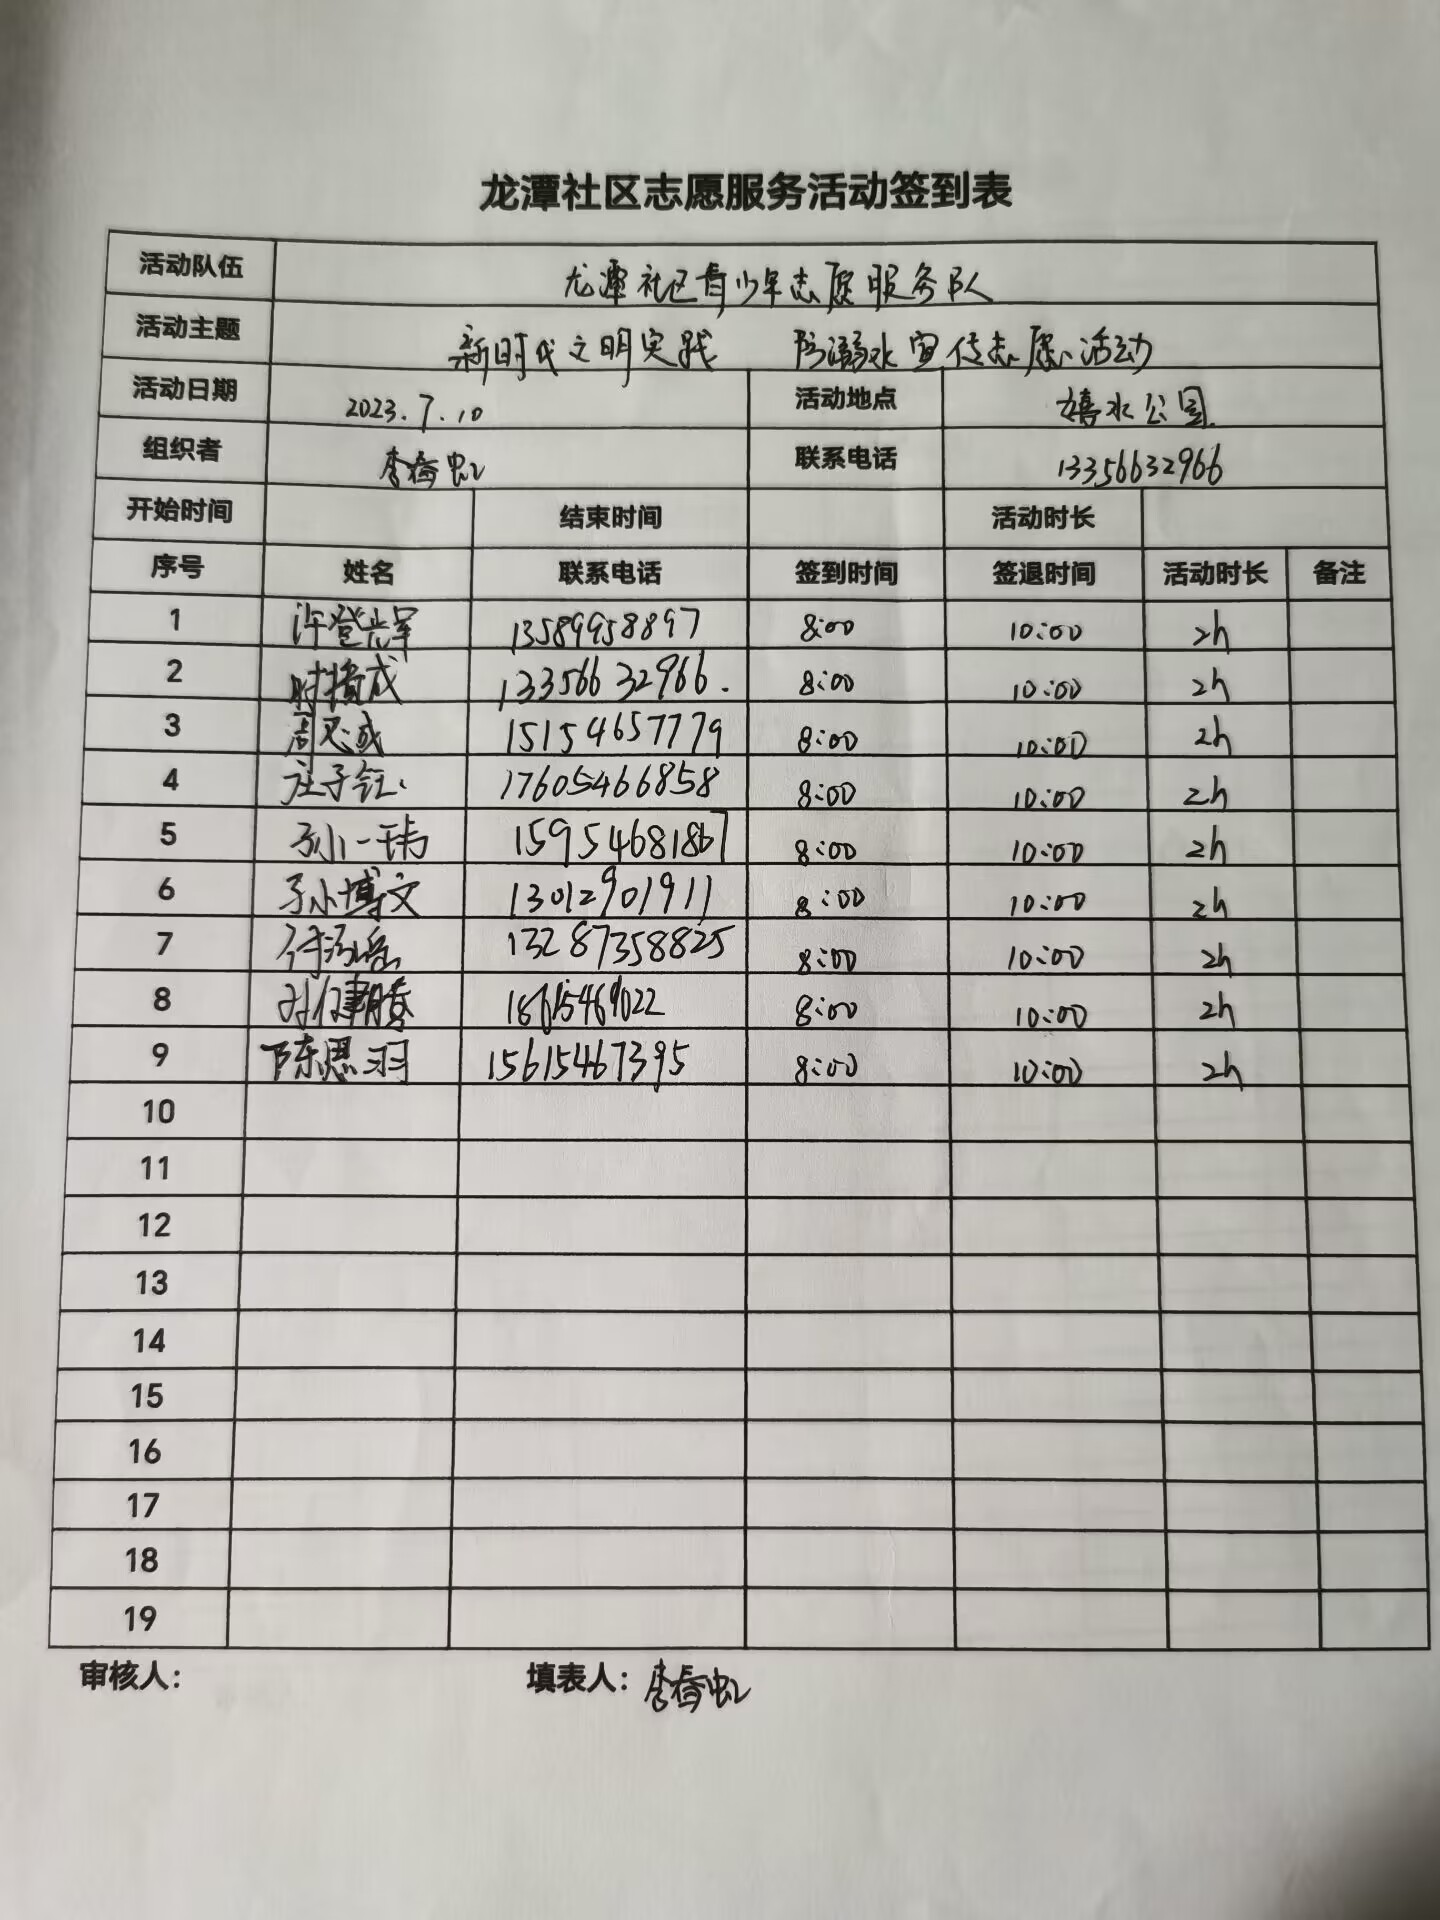 龙潭社区志愿服务活动签到表
活动队伍 龙潭社区青少年志愿服务队
活动主题 新时代文明实践 防溺水宣传志愿活动
活动日期 2023.7.10 活动地点 嬉水公园
组织者 李春虹 联系电话 13356632966
开始时间 结束时间 活动时长
序号 姓名 联系电话 签到时间 签退时间 活动时长 备注
1 许登 13589958897 8:00 10:00 2h
2 成 13356632966. 8:00 10:00 2h
3 周 15154657779 8:00 10:00 2h
4 庄子钰 17605466858 8:00 10:00 2h
5 孙一玮 15954681867 8:00 10:00 2h
6 孙博文 13012901911 8:00 10:00 2h
7 13287358825 8:00 10:00 2h
8 8:00 10:00 2h
9 陈思羽 15615467395 8:00 10:00 2h
10
11
12
13
14
15
16
17
18
19
审核人： 填表人：李春虹